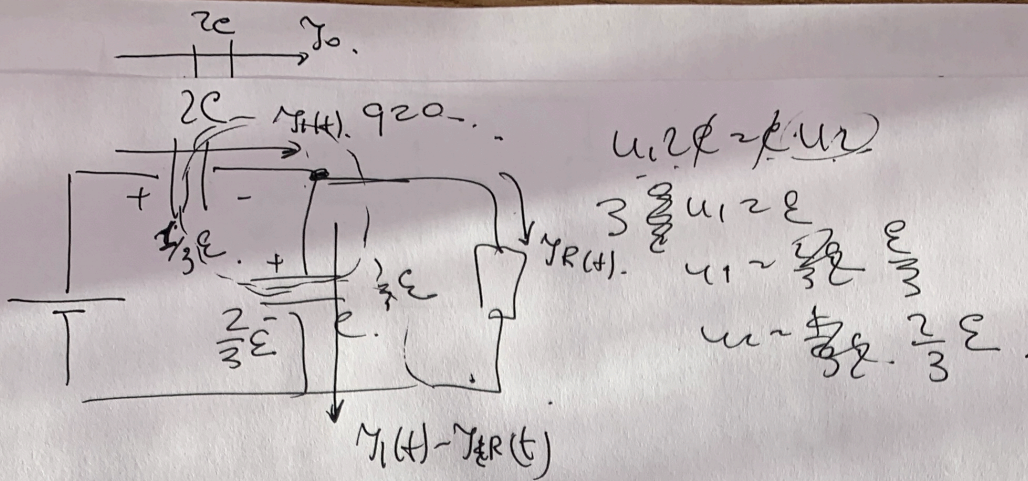 2C
J₀.
2C
J₁(t).
+
-
1/3 ℰ.
+
-
2/3 ℰ
C.
J_R(t).
J₁(t) - J_R(t)
u₁2C = C·u₂
3 u₁ = ℰ
u₁ = ℰ/3
u₂ = 2/3 ℰ.